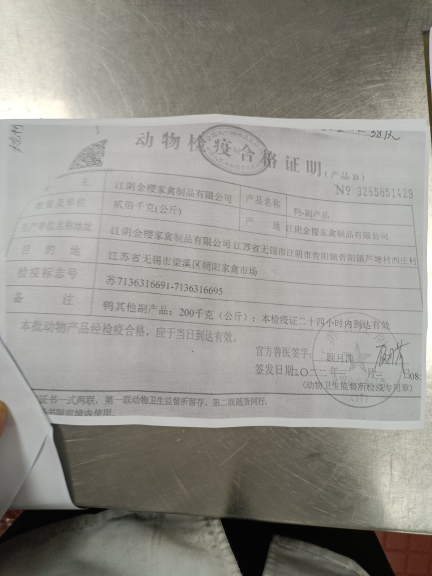 动物检疫合格证明(产品B)
№ 3285851429
货 主 江阴金樱家禽制品有限公司 产品名称 鸭-副产品
数量及单位 贰佰千克(公斤) 产 地 江阴金樱家禽制品有限公司
生产单位名称地址 江阴金樱家禽制品有限公司 江苏省无锡市江阴市青阳镇青阳镇芦塘村西庄村
目 的 地 江苏省无锡市梁溪区朝阳家禽市场
检疫标志号 苏7136316691-7136316695
备 注 鸭其他副产品:200千克(公斤):本检疫证二十四小时内到达有效
本批动物产品经检疫合格,应于当日到达有效。
官方兽医签字:
签发日期:二〇二二年三月
(动物卫生监督所检疫专用章)
证书一式两联,第一联动物卫生监督所留存,第二联随货同行。
境内使用。